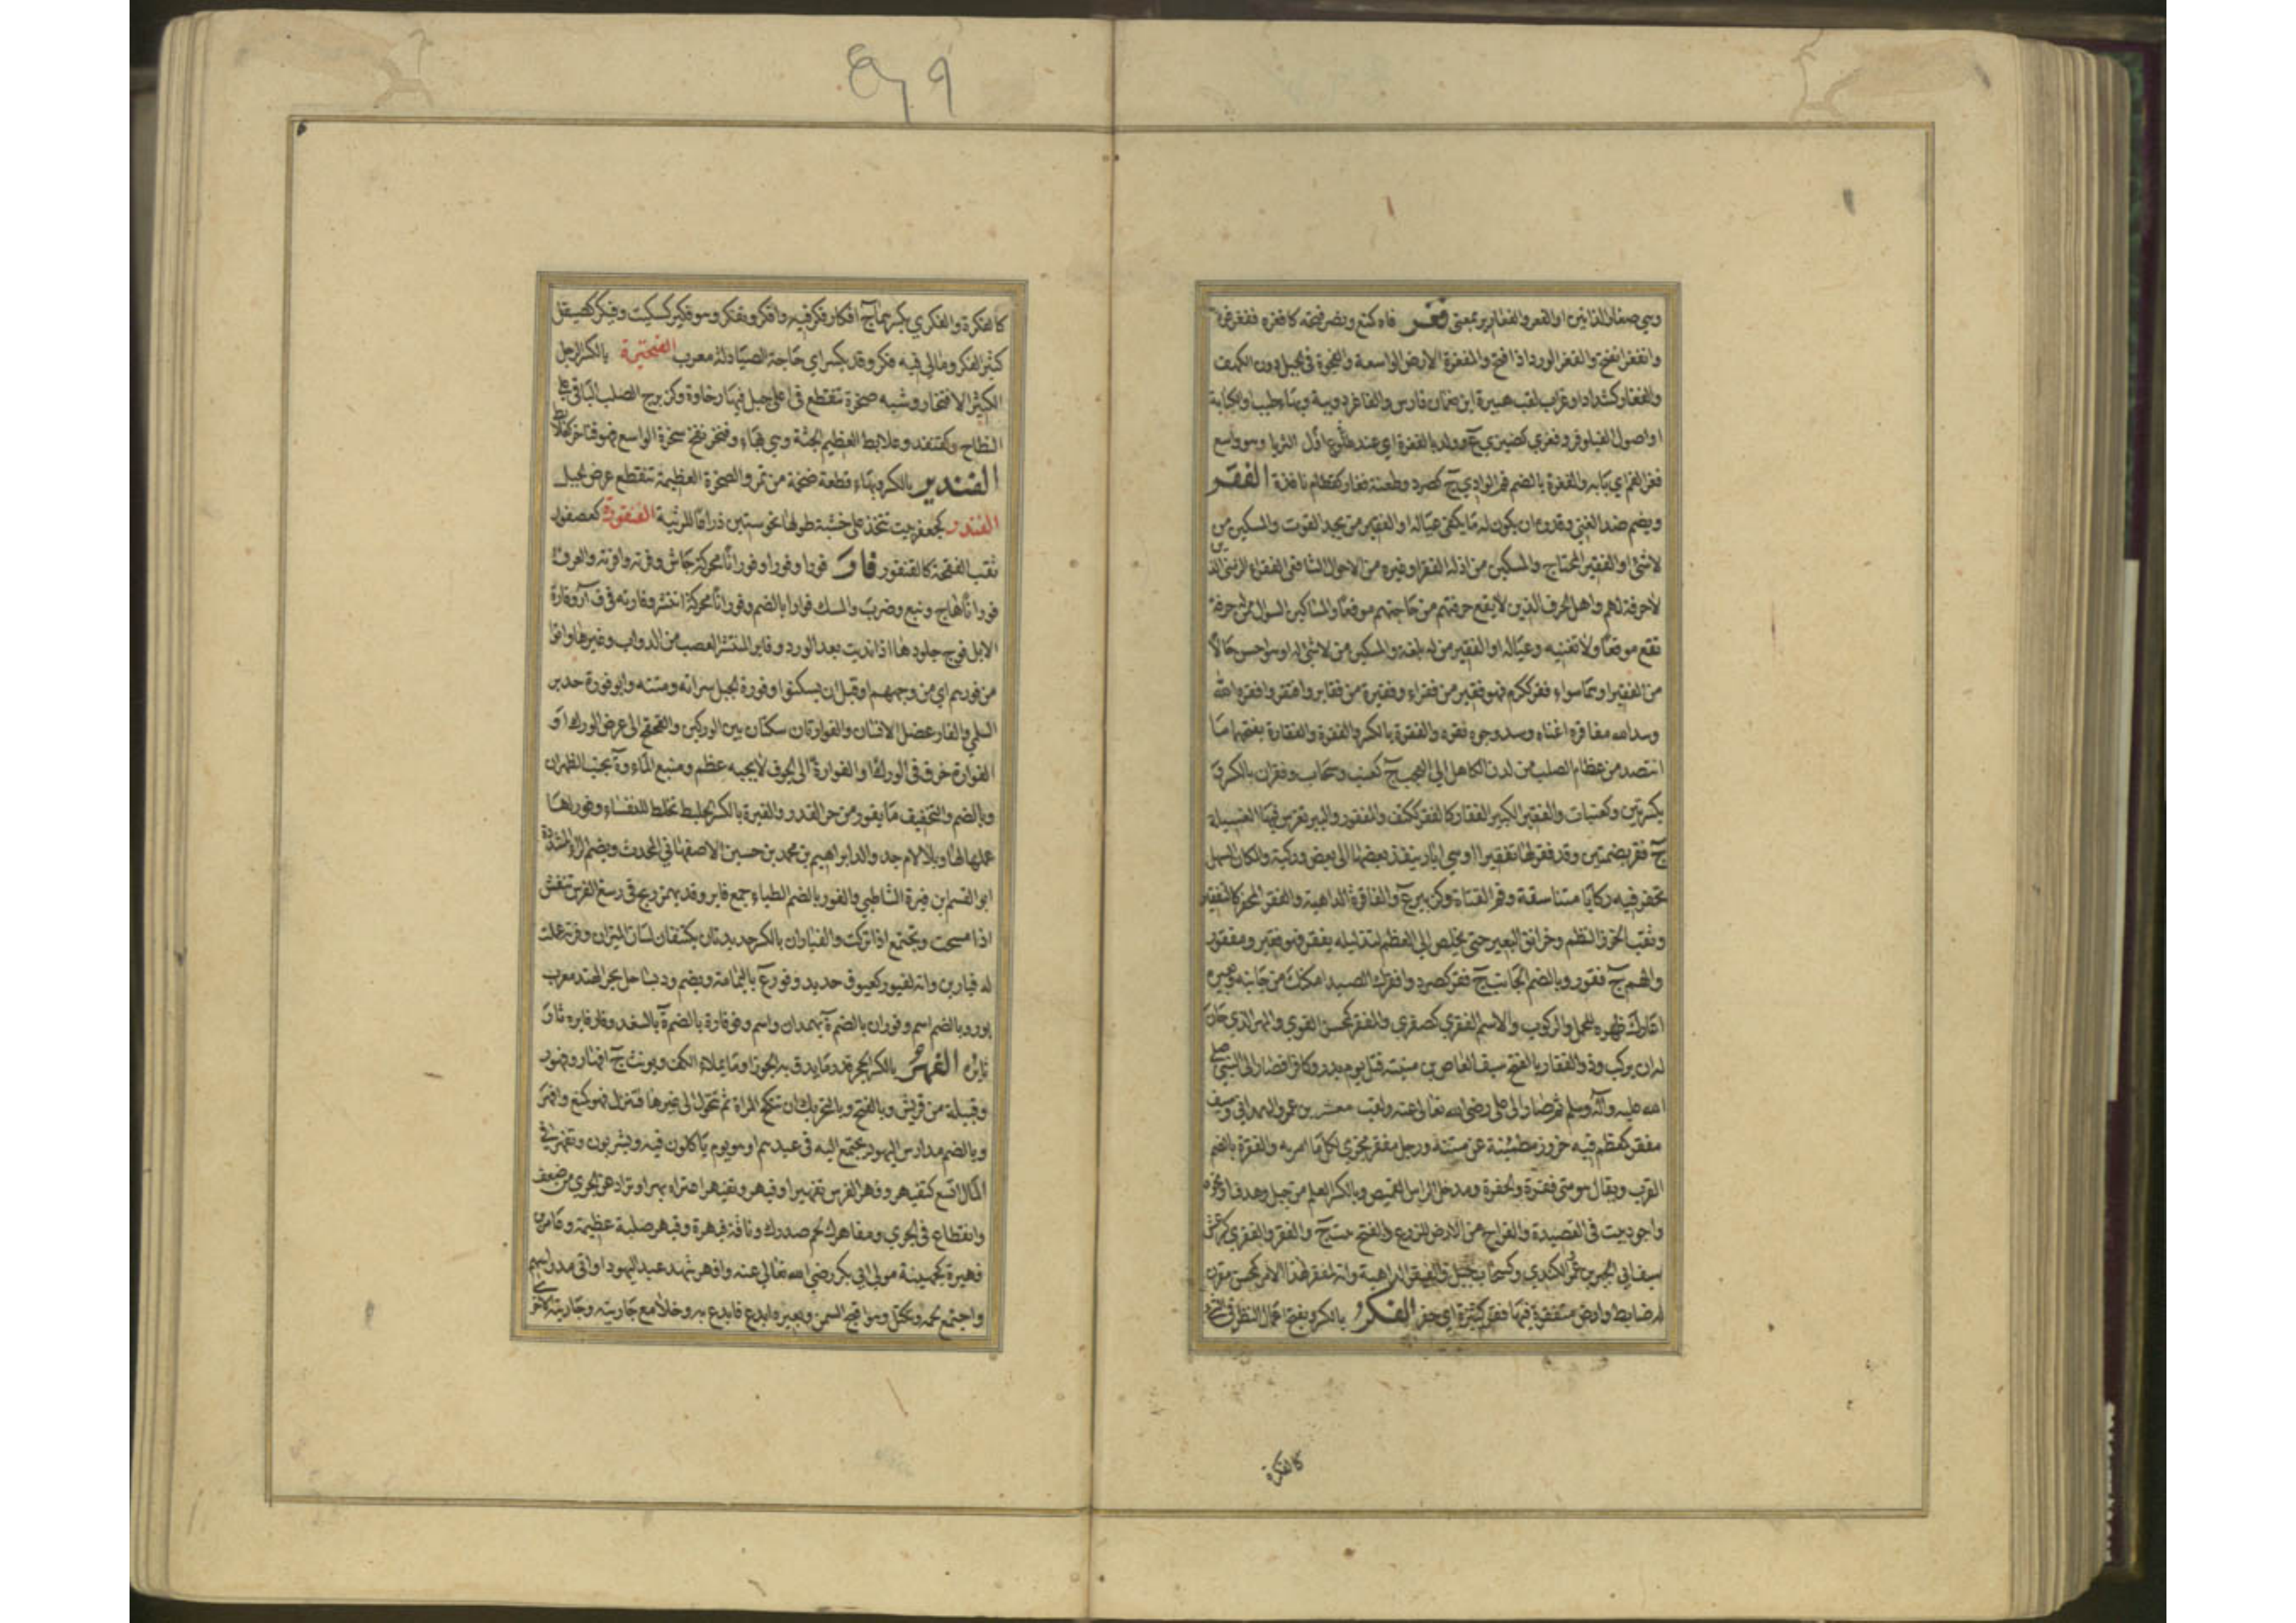 وهي صغار الذآنين او القعر والفغارير بمعنى فغر فاه كمنع ونصر فتحه كافغره ففغر فوه
وانفغر انفتح والفغر الورد اذا فتح والمفغرة الارض الواسعة والفجوة في الجبل دون الكهف
والفغار كشداد او غراب لقب هبيرة ابن النعمان فارس والفاغر دويبة وبهاء طيب او الكبابة
او اصول النيلوفر وفغرى كضيزى ع وولد بالفغرة اي عند طلوع اول الثريا وهو واسع
فغر الفم اي بابه والفغرة بالضم فم الوادي ج كصرد وطعنة فغار كقطام نافذة الفقر
ويضم ضد الغنى وقدره ان يكون له ما يكفي عياله او الفقير من يجد القوت والمسكين من
لا شئ له او الفقير المحتاج والمسكين من اذله الفقر او غيره من الاحوال الشافعي الفقراء الزمنى الذين
لا حرفة لهم واهل الحرف الذين لا يقع حرفتهم من حاجتهم موقعا والمساكين السؤال ممن له حرفة
تقع موقعا ولا تغنيه وعياله او الفقير من له بلغة والمسكين من لا شئ له او هو احسن حالا
من الفقير او هما سواء فقر ككرم فهو فقير من فقراء وفقيرة من فقاير وافتقر وافقره الله
وسد الله مفاقره اغناه وسد وجوه فقره والفقرة بالكسر والفقرة والفقارة بفتحهما ما
انتضد من عظام الصلب من لدن الكاهل الى العجب ج كعنب وسحاب وفقرات بالكسر او
بكسرتين وكعنبات والفقير الكسير الفقار كالفقر ككتف والمفقور والبير تغرس فيها الفسيلة
ج فقر بضمتين وقد فقر لها تفقيرا او هي ابار ينفذ بعضها الى بعض وركية والمكان السهل
تحفر فيه ركايا متناسقة وفم القناة وركن ببير ع والفاقرة الداهية والفقر الحفر كالتفقير
وثقب الخرز للنظم وحز انف البعير حتى يخلص الى العظم لتذليله يفقر فهو فقير ومفقور
والهم ج فقور وبالضم الجانب ج فقر كصرد وافقرك الصيد امكنك من جانبه وبعيره
اعارك ظهره للحمل والركوب والاسم الفقرى كصغرى والمفقر كمحسن القوي والمهر الذي حان
له ان يركب وذو الفقار بالفتح سيف العاص بن منبه قتل يوم بدر وكافرا فصار الى النبي صلى
الله عليه وآله وسلم ثم صار الى علي رضي الله تعالى عنه ولقب معشر بن عمرو الهمداني وسيف
مفقر كمعظم فيه حزوز مطمئنة عن متنه ورجل مفقر مجزي لكل ما امر به والفقرة بالضم
القرب ويقال هو مني فقرة والحفرة ومدخل الراس من القميص وبالكسر العلم من جبل وهدف او نحوه
واجود بيت في القصيدة والقراح من الارض للزرع وبالفتح نبت ج والفقر والفقري كز
سيف ابي الخير بن عمرو الكندي وكسحاب جبل والفيقر الداهية وانه لمفقر لهذا الامر كمحسن مقرن
له ضابط وارض متفقرة فيها فقر كثيرة اي حفر الفكر بالكسر ويفتح اعمال النظر في الشئ
كالفكرة
كالفكرة والفكرى بكسرهما ج افكار فكر فيه وافكر وفكر وهو فكير كسكيت وفيكر كصيقل
كثير الفكر ومالي فيه فكر وقد يكسر اي حاجة الصياد له معرب الفنجيرة بالكسر الرجل
الكثير الافتخار وشبه صخرة تنقطع في اعلى جبل فيها رخاوة وكزبرج الصلب الباقي على
النطاح وكقنفذ وعلابط العظيم الجثة وهي بهاء وفنخر نفخ سخرة الواسع فهو فناخر كعلابط
الفندير بالكسر وبهاء قطعة ضخمة من تمر والصخرة العظيمة تنقطع عرض الجبل
الفندر كجعفر بيت تتخذ على خشبة طولها نحو ستين ذراعا للربيئة الفنقورة كعصفورة
ثقب الفقحة كالفنقور فار فورا وفورا وفورانا محركة جاش وفرته وافرته والعرق
فورانا هاج ونبع وضرب والمسك فوارا بالضم وفورانا محركة انتشر وفارته في ف أ ر وفارة
الابل فوح جلودها اذا نديت بعد الورد وفاير المنتشر العصب من الدواب وغيرها واتوا
من فورهم اي من وجههم او قبل ان يسكنوا وفورة الجبل سراته ومتنه وابو فورة حدير
السلمي والفار عضل الانسان والفوارتان سكتان بين الوركين والقحقح الى عرض الورك او
الفوارة خرق في الورك او الفوارة الى الجوف لا يحجبه عظم ومنبع الماء وة بجنب الظهران
وبالضم والتخفيف ما يفور من حر القدر والفيرة بالكسر الحلبة تخلط للنفساء وفور لها
عملها لها وبلالام جد والد ابراهيم بن محمد بن حسين الاصفهاني المحدث وبضم الراء المشددة
ابو القسم بن فيره الشاطبي والفور بالضم الظباء جمع فاير وقد يهمز ريح في رسغ الفرس تنفش
اذا مسحت وتجتمع اذا تركت والفياران بالكسر حديدتان يكتنفان لسان الميزان وفرته عملت
له فيارين وانه لفيور كعيوق حديد وفور ع باليمامة ويضم ود بساحل بحر الهند معرب
بور وبالضم اسم وفوران بالضم ة بهمدان واسم وفوفارة بالضم ة بالسغد وفار فايره ثار
ثايره الفهر بالكسر الحجر قدر ما يدق به الجوز او ما يملاء الكف ويونث ج افهار وفهور
وقبيلة من قريش وبالفتح وبالتحريك ان تنكح المراة ثم تحول الى غيرها فتنزل فهو كمنع وافهر
وبالضم مدارس اليهود يجتمع اليه في عيدهم او هو يوم ياكلون فيه ويشربون وتفهر في
المال اتسع كتفيهر وفهر الفرس تفهيرا وفيهر وتفيهر اعتراه بهر او تراد عن الجري من ضعف
وانقطاع في الجري ومفاهرك لحم صدرك وناقة فيهرة وفيهر صلبة عظيمة وعامر بن
فهيرة كجهينة مولى ابي بكر رضي الله تعالى عنه وافهر شهد عيد اليهود او اتى مدراسهم
واجتمع لحمه وتكتل وهو اقبح السمن وبعيره ابدع فابدع به وخلا مع جاريته وجاريته الاخرى